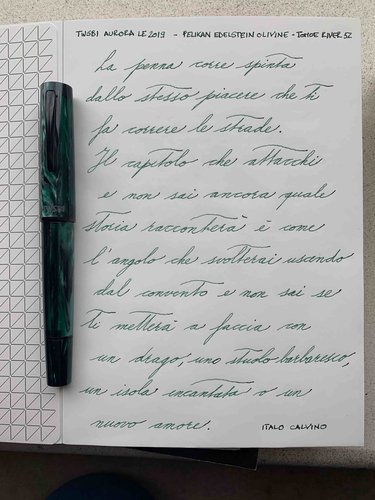 TWSBI AURORA LE 2019 - PELIKAN EDELSTEIN OLIVINE - TOMOE RIVER 52
La penna corre spinta
dallo stesso piacere che ti
fa correre le strade.
Il capitolo che attacchi
e non sai ancora quale
storia racconterà è come
l'angolo che svolterai uscendo
dal convento e non sai se
ti metterà a faccia con
un drago, uno stuolo barbaresco,
un isola incantata o un
nuovo amore.
ITALO CALVINO